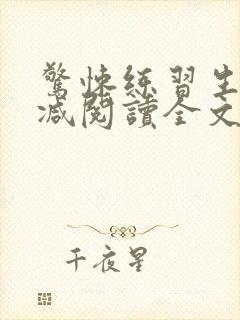 驚悚練習生
減閱讀全文
千夜星